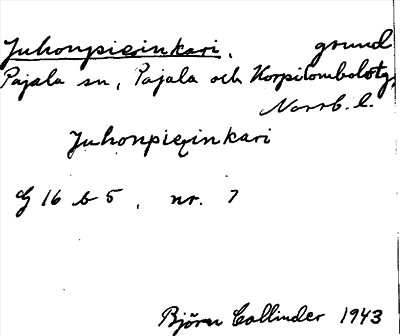 Juhonpiẹinkari, grund
Pajala sn, Pajala och Korpilombolotg,
Norrb. l.
Juhonpiẹinkari
G 16 b 5, nr. 7
Björn Collinder 1943